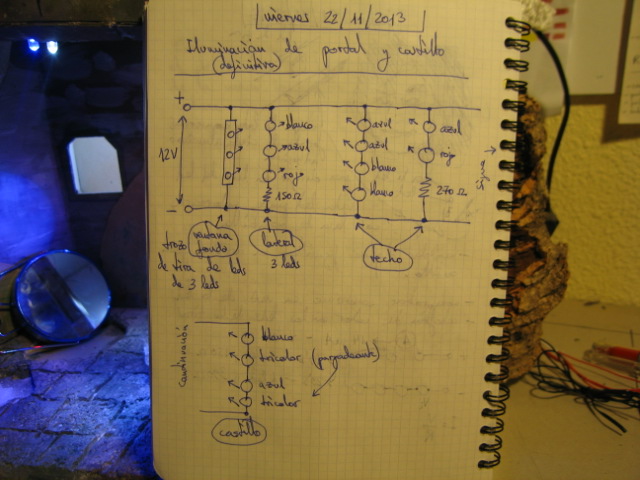 viernes 22/11/2013
Iluminación de portal y castillo
(definitiva)
+
12V
-
blanco
azul
rojo
150Ω
azul
azul
blanco
blanco
azul
rojo
270Ω
sigue
ventana fondo
trozo de tira de leds de 3 leds
lateral
3 leds
techo
continuación
blanco
tricolor (parpadeante)
azul
tricolor
castillo